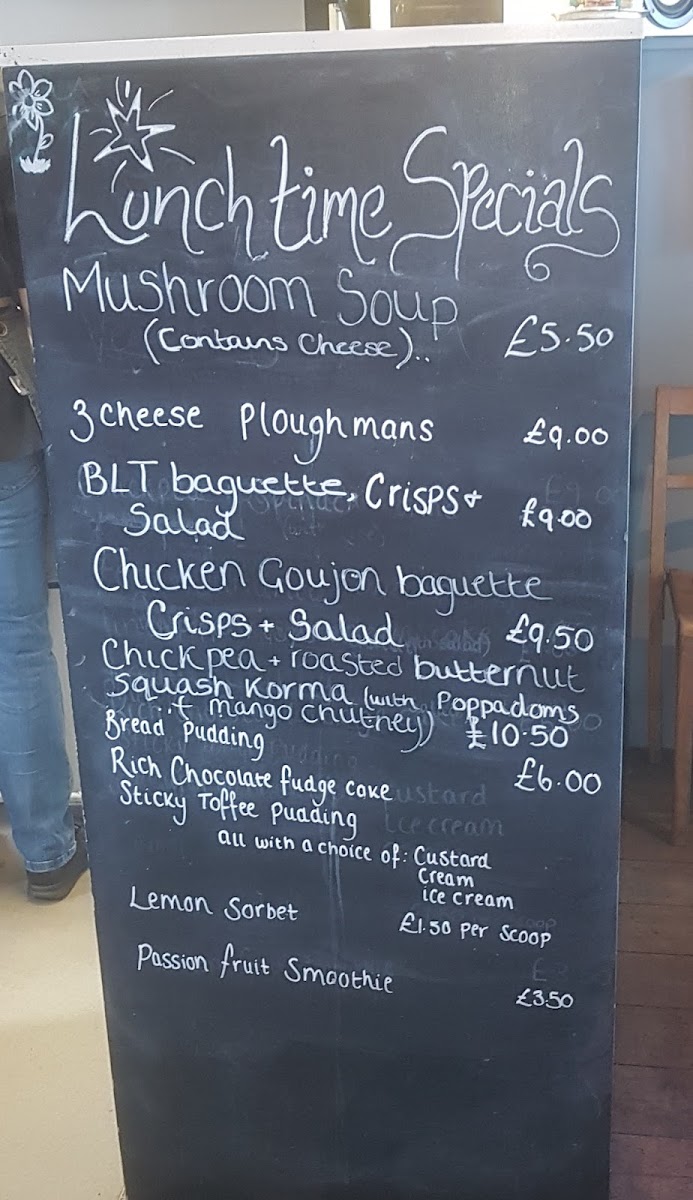 Lunchtime Specials
Mushroom Soup
(Contains Cheese).. £5.50
3 cheese Ploughmans £9.00
BLT baguette, Crisps +
Salad £9.00
Chicken Goujon baguette
Crisps + Salad £9.50
Chickpea + roasted butternut
Squash Korma (with Poppadoms
+ mango chutney) £10.50
Bread Pudding
Rich Chocolate fudge cake £6.00
Sticky Toffee Pudding
all with a choice of: Custard
Cream
ice cream
Lemon Sorbet £1.50 Per Scoop
Passion fruit Smoothie £3.50